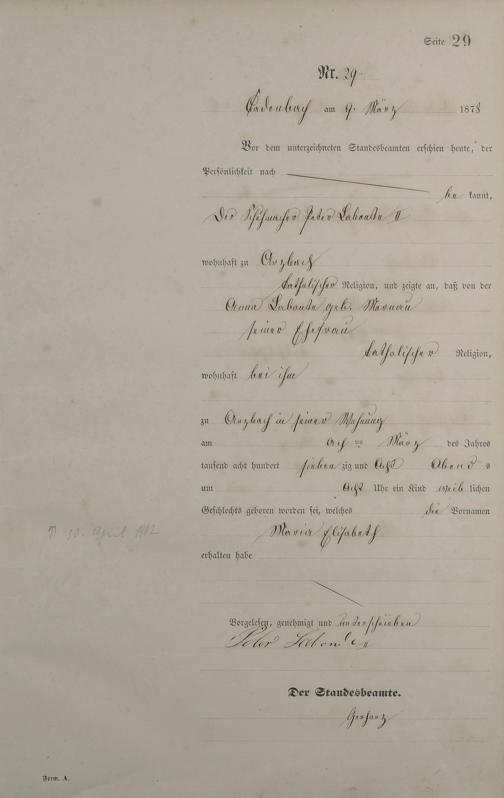 Seite 29
Nr. 29.
Cadenbach am 9. März 1878
Vor dem unterzeichneten Standesbeamten erschien heute, der
Persönlichkeit nach
be kannt,
Der Schuhmacher Peter Labonte II
wohnhaft zu Arzbach
katholischer Religion, und zeigte an, daß von der
Anna Labonte geb.
seiner Ehefrau
katholischer Religion,
wohnhaft bei ihm
zu Arzbach in seiner Wohnung
am ach ten März des Jahres
tausend acht hundert sieben zig und Acht Abend s
um Acht Uhr ein Kind weib lichen
Geschlechts geboren worden sei, welches die Vornamen
Maria Elisabeth
erhalten habe
Vorgelesen, genehmigt und unterschrieben
Peter Labonte II
Der Standesbeamte.
Gerharz
† 10. April
Form. A.